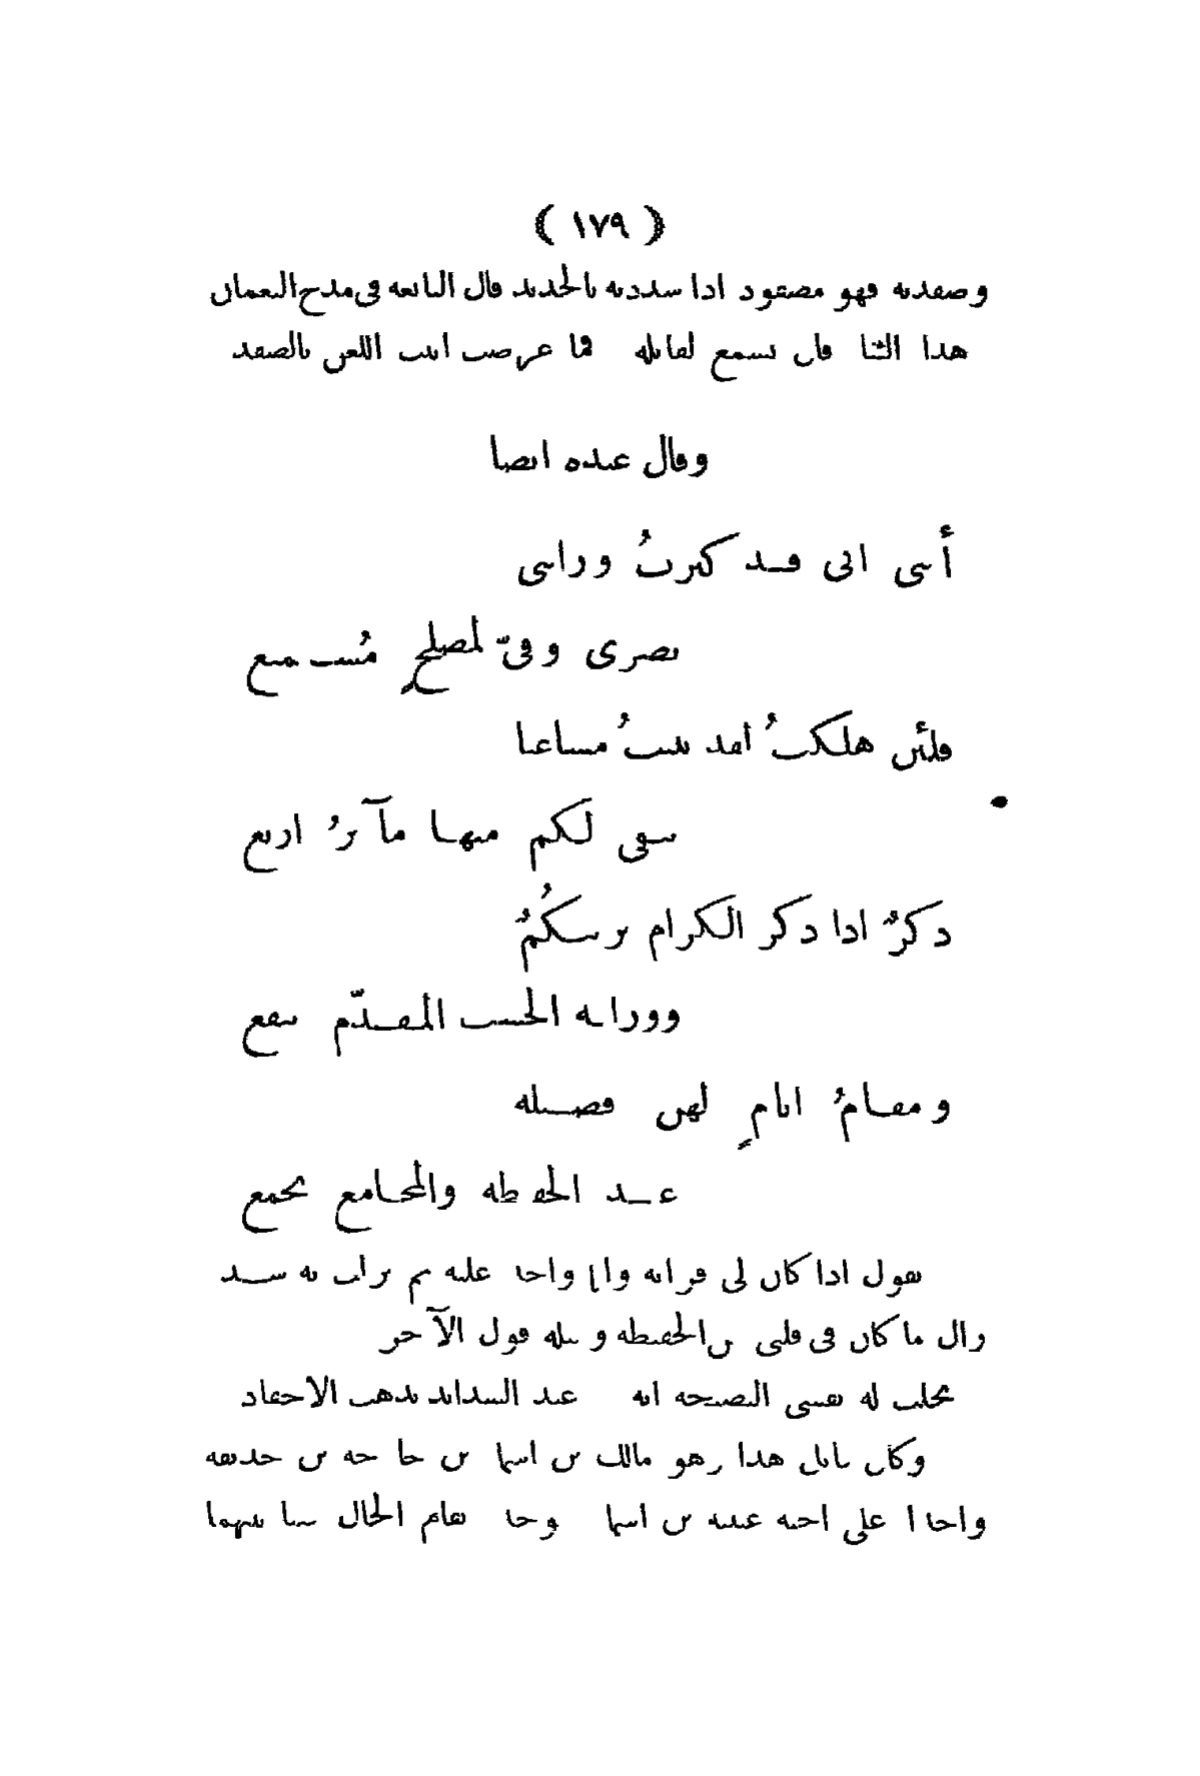 ( ١٧٩ )
وصفدته فهو مصفود اذا شددته بالحديد قال النابغه فى مدح النعمان
هذا الثنا فان تسمع لقايله فما عرضت ابيت اللعن بالصفد
وقال عبده ايضا
أبنى انى قد كبرتُ ورابنى
بصرى وفىّ لمصلحٍ مُستمتع
فلئن هلكتُ لقد بنيتُ مساعيا
تبقى لكم منها مآثرُ اربع
ذكرٌ اذا ذكر الكرام يزينكُمُ
ووراثه الحسب المقدّم تنفع
ومقامُ ايامٍ لهن فضيله
عند الحفيظه والمجامع تجمع
يقول اذا كان لى قرابه وانا واجد عليه ثم نزلت به شده
زال ما كان فى قلبى من الحفيظه و قول الآخر
نخلت له نفسى النصيحه انه عند الشدايد تذهب الاحقاد
وكان هذا وهو مالك بن اسما بن خارجه بن حذيفه
واجدا على اخيه عيينه بن اسما الحال بينهما